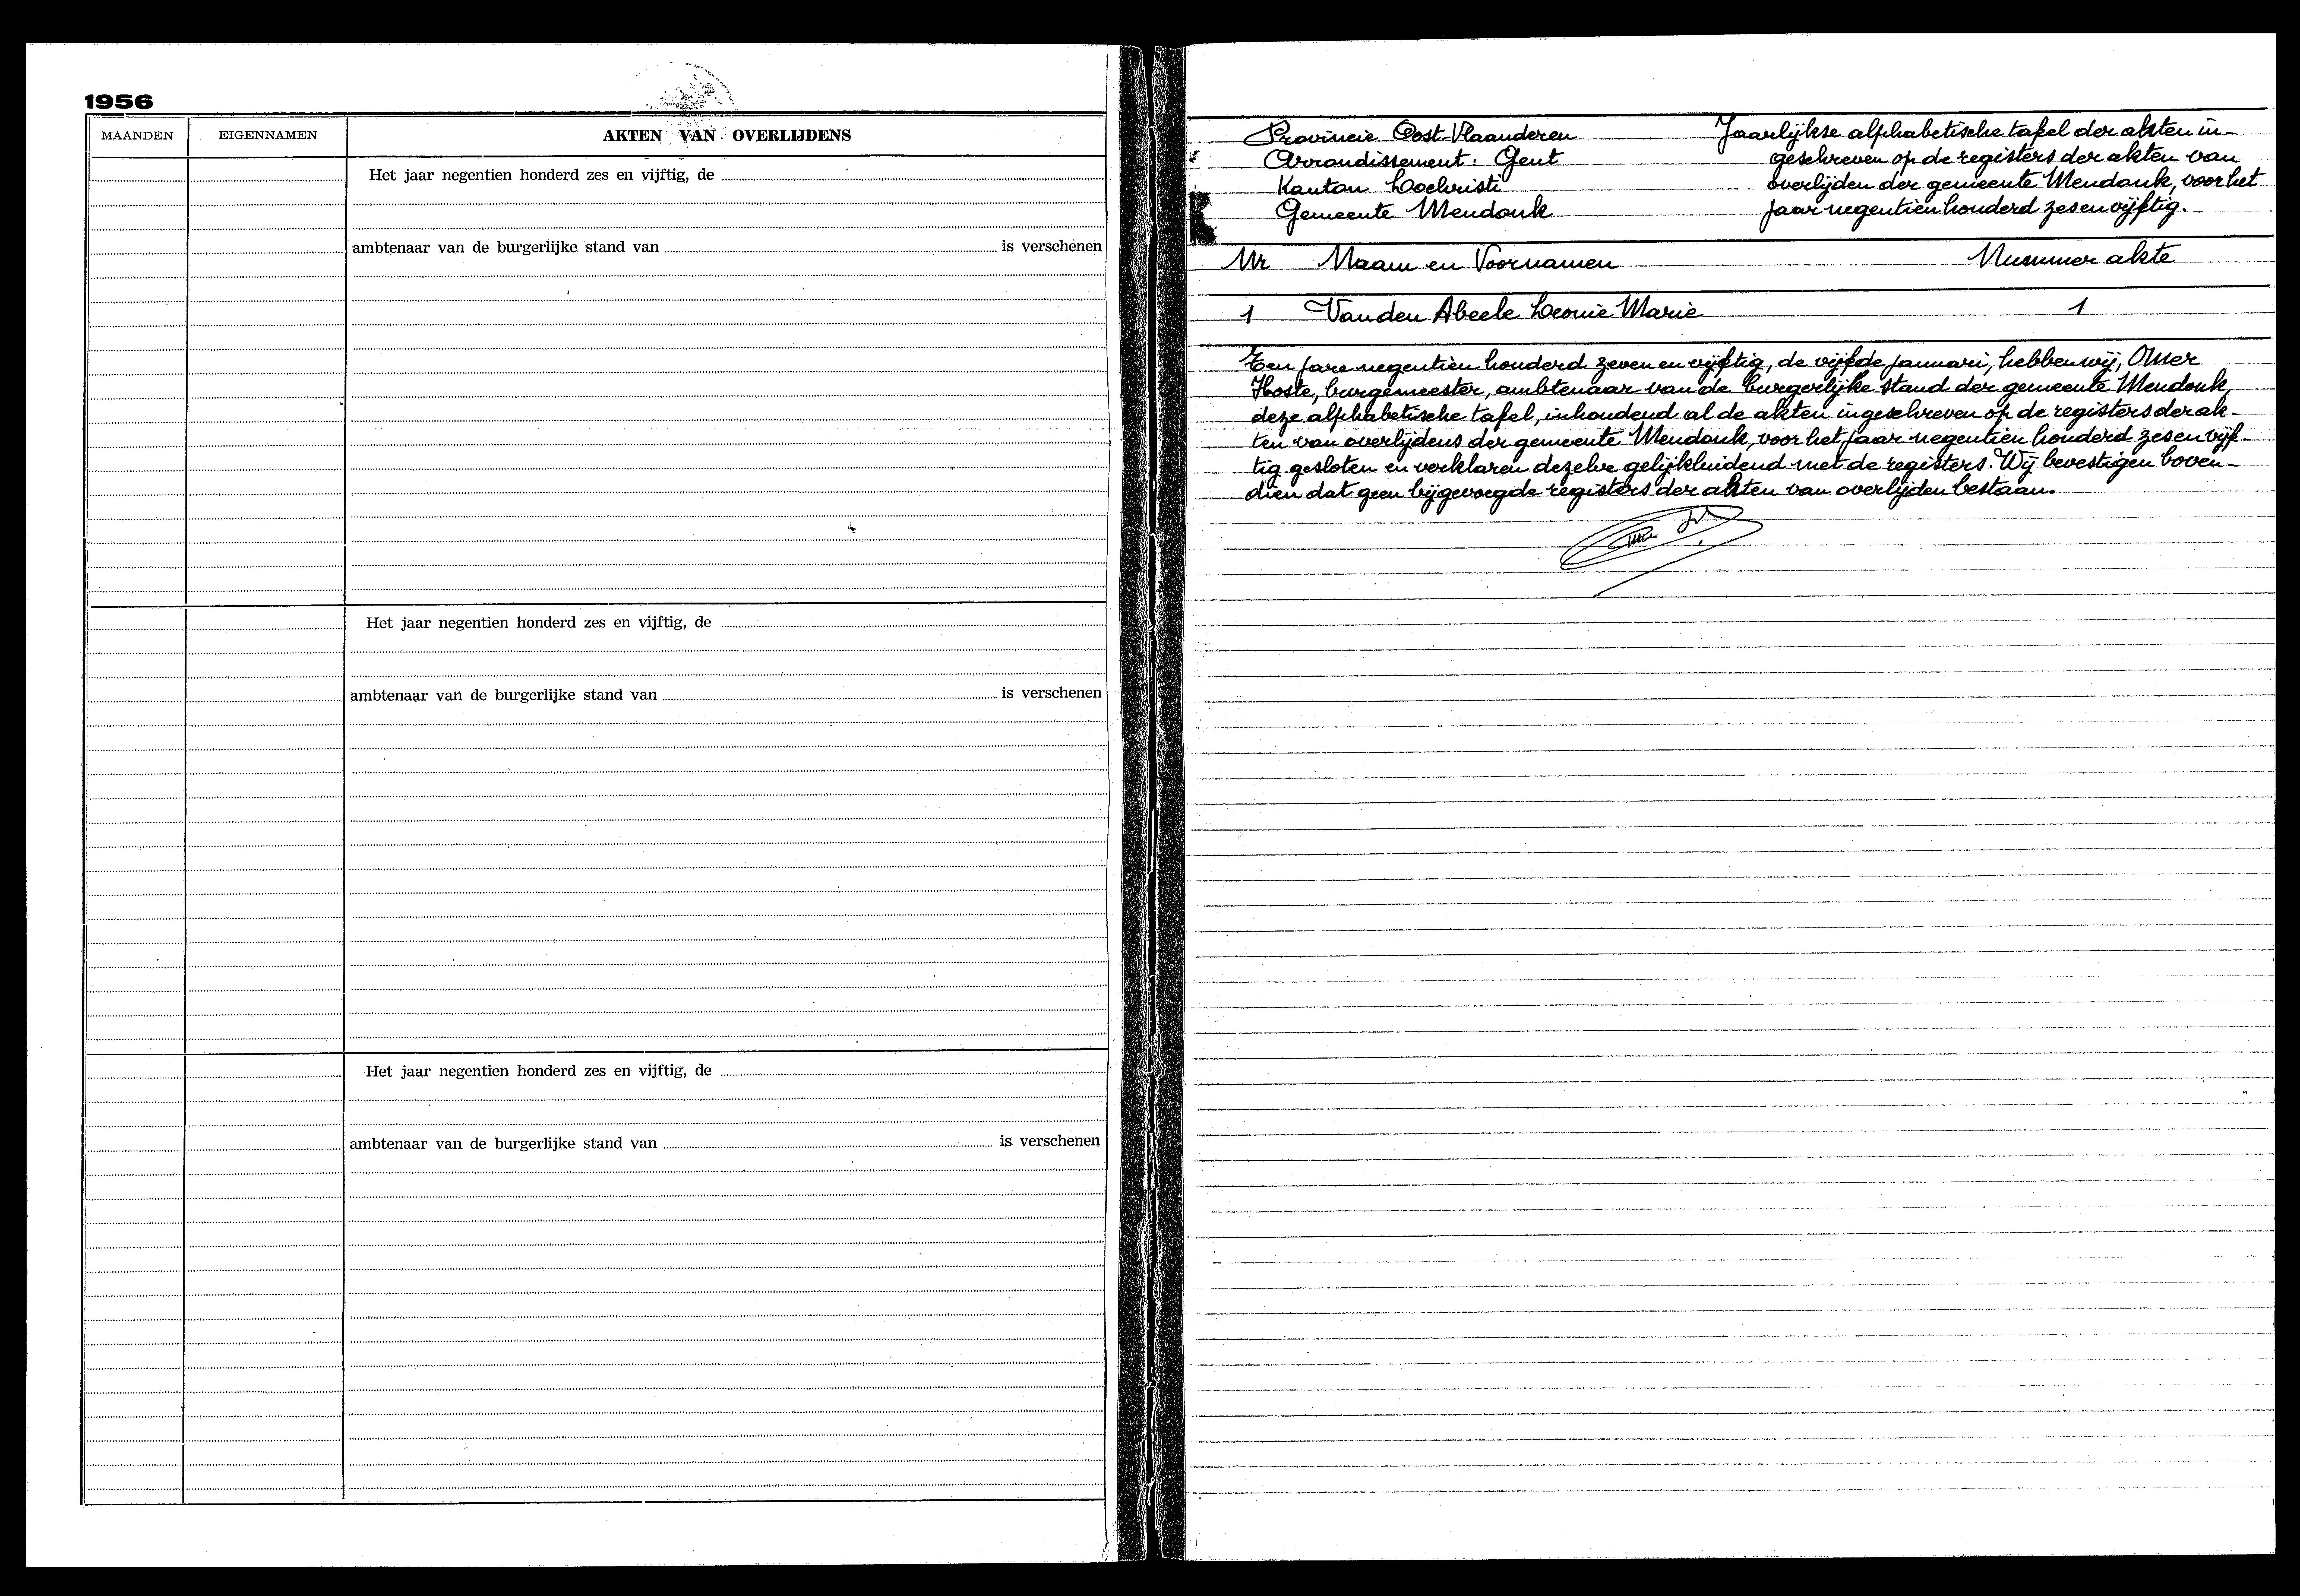 1956
MAANDEN EIGENNAMEN AKTEN VAN OVERLIJDENS
Het jaar negentien honderd zes en vijftig, de
ambtenaar van de burgerlijke stand van is verschenen
Het jaar negentien honderd zes en vijftig, de
ambtenaar van de burgerlijke stand van is verschenen
Het jaar negentien honderd zes en vijftig, de
ambtenaar van de burgerlijke stand van is verschenen
Provincie Oost-Vlaanderen
Arrondissement: Gent
Kanton Lochristi
Gemeente Mendonk
Jaarlijkse alphabetische tafel der akten in-
geschreven op de registers der akten van
overlijden der gemeente Mendonk, voor het
jaar negentien honderd zes en vijftig.
Nr Naam en Voornamen Nummer akte
1 Van den Abeele Leonie Marie 1
Ten jare negentien honderd zeven en vijftig, de vijfde januari, hebben wij, Omer
Hoste, burgemeester, ambtenaar van de burgerlijke stand der gemeente Mendonk,
deze alphabetische tafel, inhoudend al de akten ingeschreven op de registers der ak-
ten van overlijdens der gemeente Mendonk, voor het jaar negentien honderd zes en vijf-
tig gesloten en verklaren dezelve gelijkluidend met de registers. Wij bevestigen boven-
dien dat geen bijgevoegde registers der akten van overlijden bestaan.